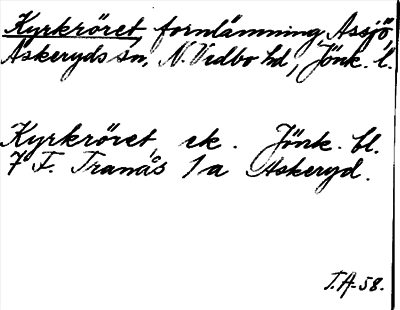 Kyrkröret, fornlämning, Assjö,
Askeryds sn, N. Vedbo hd, Jönk. l.
Kyrkröret, ek. Jönk. bl.
7 F. Tranås 1a Askeryd.
T.A-58.